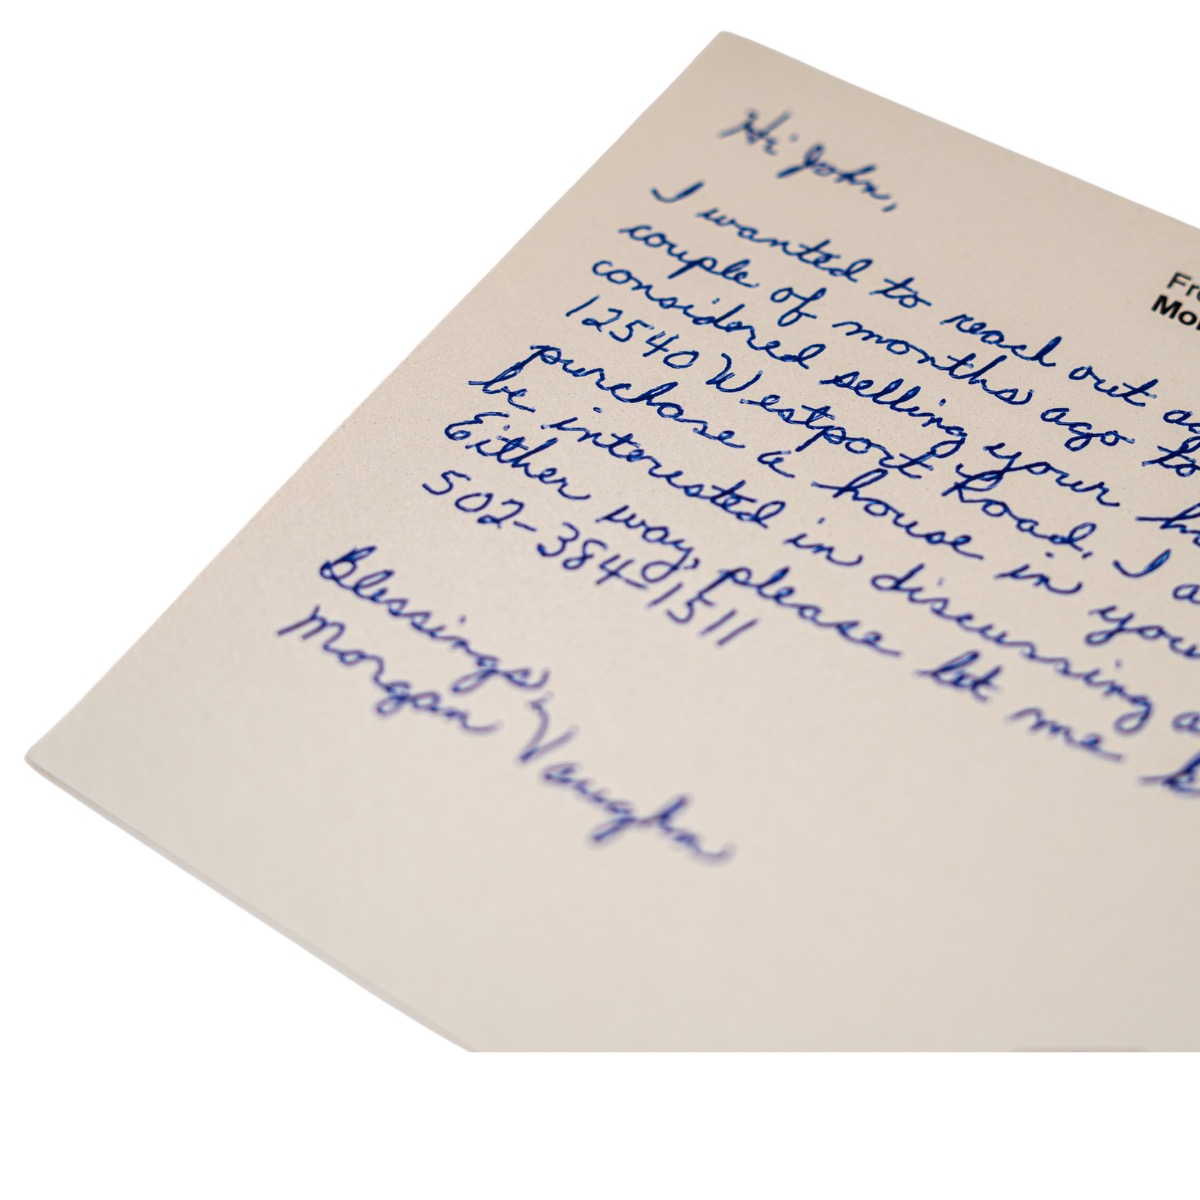 Hi John,
I wanted to reach out
couple of months ago to
considered selling your
12540 Westport Road. I
purchase a house in
be interested in discussing
Either way, please let me
502-384-1511
Blessings,
Morgan Vaughn